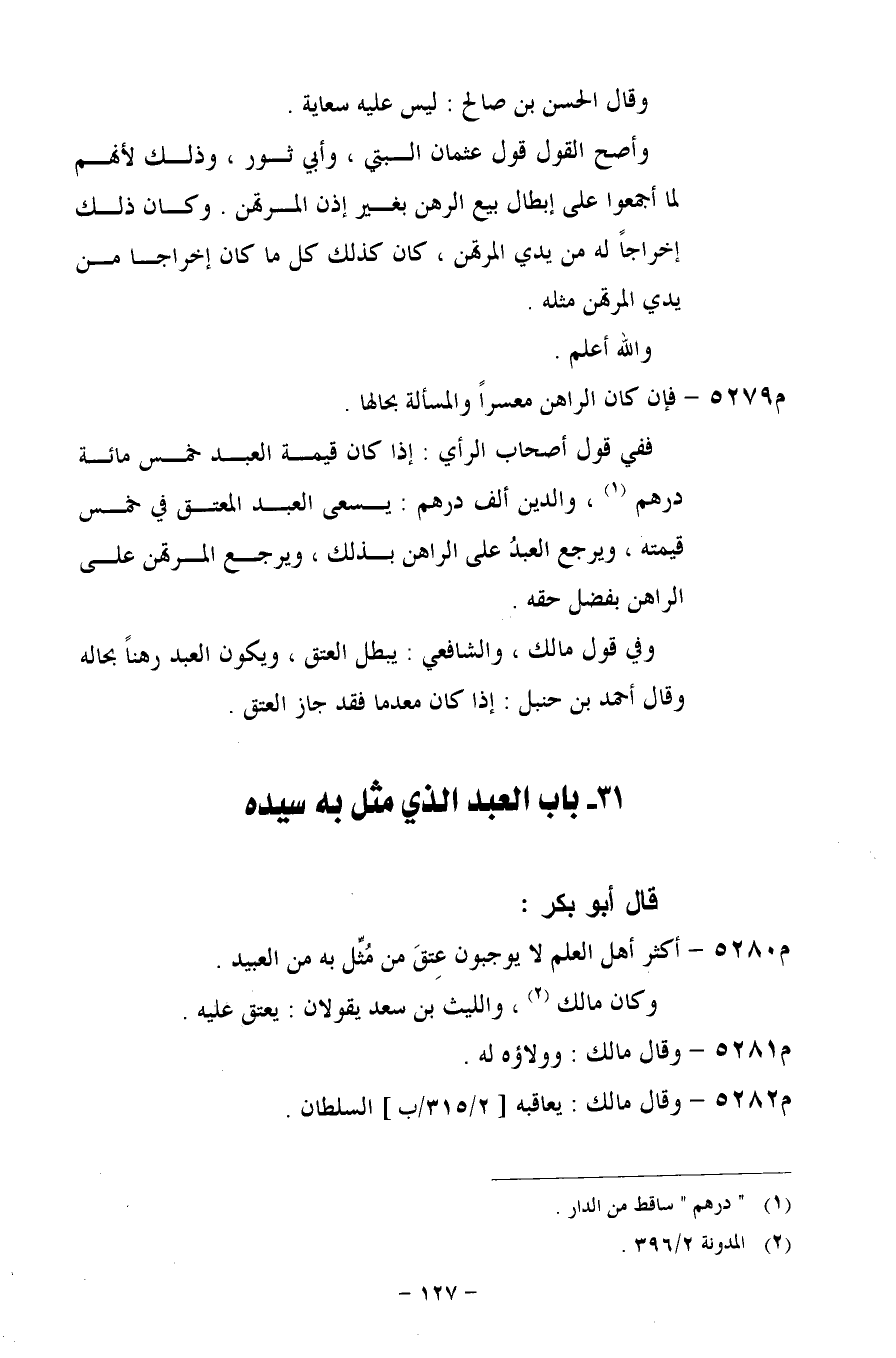 وقال الحسن بن صالح : ليس عليه سعاية .
وأصح القول قول عثمان البتي ، وأبي ثور ، وذلك لأنهم
لما أجمعوا على إبطال بيع الرهن بغير إذن المرتهن . وكان ذلك
إخراجاً له من يدي المرتهن ، كان كذلك كل ما كان إخراجا من
يدي المرتهن مثله .
والله أعلم .
م٥٢٧٩ – فإن كان الراهن معسراً والمسألة بحالها .
ففي قول أصحاب الرأي : إذا كان قيمة العبد خمس مائة
درهم (١) ، والدين ألف درهم : يسعى العبد المعتق في خمس
قيمته ، ويرجع العبدُ على الراهن بذلك ، ويرجع المرتهن على
الراهن بفضل حقه .
وفي قول مالك ، والشافعي : يبطل العتق ، ويكون العبد رهناً بحاله
وقال أحمد بن حنبل : إذا كان معدما فقد جاز العتق .
٣١ـ باب العبد الذي مثل به سيده
قال أبو بكر :
م٥٢٨٠ – أكثر أهل العلم لا يوجبون عِتقَ من مُثّل به من العبيد .
وكان مالك (٢) ، والليث بن سعد يقولان : يعتق عليه .
م٥٢٨١ – وقال مالك : وولاؤه له .
م٥٢٨٢ – وقال مالك : يعاقبه [ ٣١٥/٢/ب ] السلطان .
(١) " درهم " ساقط من الدار .
(٢) المدونة ٣٩٦/٢ .
– ١٢٧ –